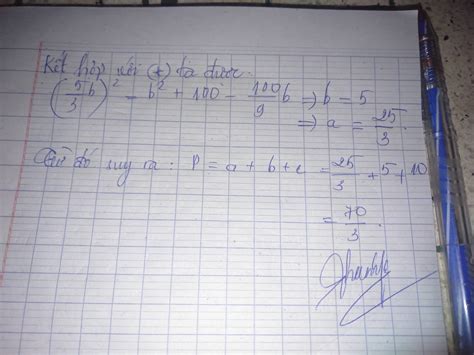 Kết hợp với (*) ta được
(5b/3)² = b² + 100 - 100/9 b ⇒ b = 5
⇒ a = 25/3.
Từ đó suy ra : P = a + b + c = 25/3 + 5 + 10
= 70/3.